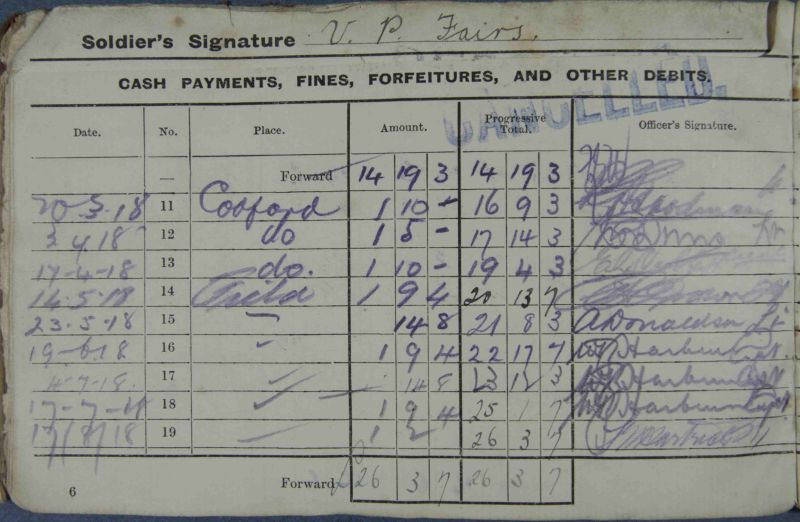 Soldier's Signature V. P. Fairs.
CASH PAYMENTS, FINES, FORFEITURES, AND OTHER DEBITS.
CANCELLED.
Date. No. Place. Amount. Progressive Total. Officer's Signature.
— Forward 14 19 3 14 19 3
20.3.18 11 Codford 1 10 - 16 9 3
3.4.18 12 do 1 5 - 17 14 3
17-4-18 13 do. 1 10 - 19 4 3
14.5.18 14 Field 1 9 4 20 13 7
23.5.18 15 14 8 21 8 3 A Donaldson Lt
19-6.18 16 1 9 4 22 17 7
4-7-18. 17 14 8 3
17-7-18 18 1 9 4 25 1 7
17/8/18 19 1 2 26 3 7
6 Forward £26 3 7 26 3 7